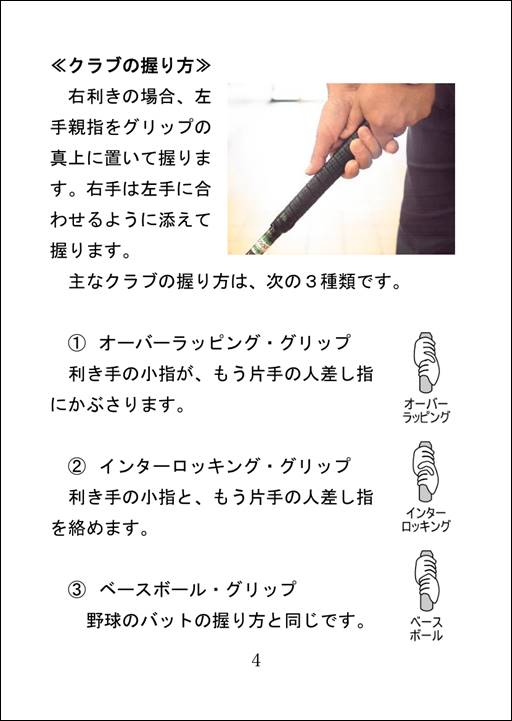 ≪クラブの握り方≫
　右利きの場合、左
手親指をグリップの
真上に置いて握りま
す。右手は左手に合
わせるように添えて
握ります。
　主なクラブの握り方は、次の３種類です。
①　オーバーラッピング・グリップ
　利き手の小指が、もう片手の人差し指
にかぶさります。
オーバー
ラッピング
②　インターロッキング・グリップ
　利き手の小指と、もう片手の人差し指
を絡めます。
インター
ロッキング
③　ベースボール・グリップ
　野球のバットの握り方と同じです。
ベース
ボール
4